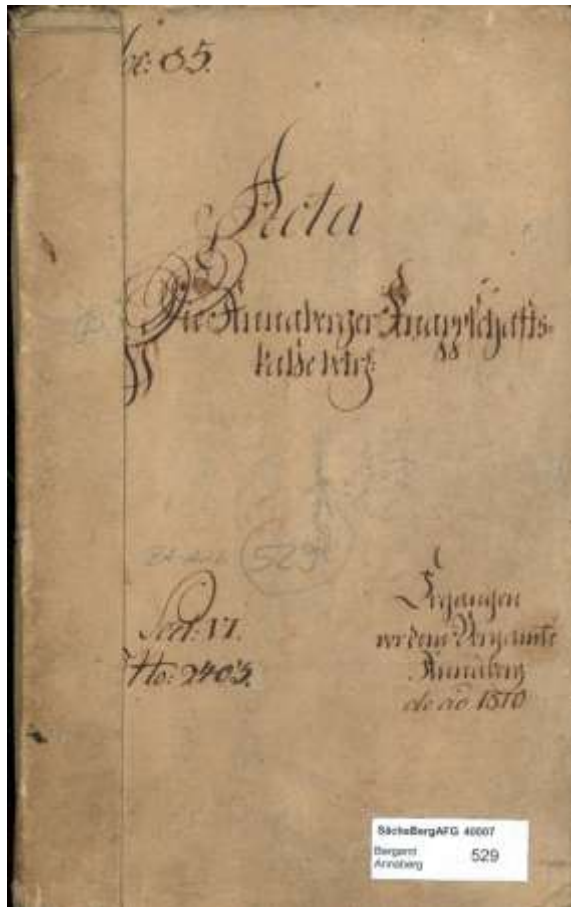 Loc: 85.
Acta
Die Annaberger Knappschafts-
kasse betr:
529
Sect: VI.
No: 2405.
Ergangen
vor dem Bergamte
Annaberg
de ao 1810
SächsBergAFG 40007
Bergamt
Annaberg
529